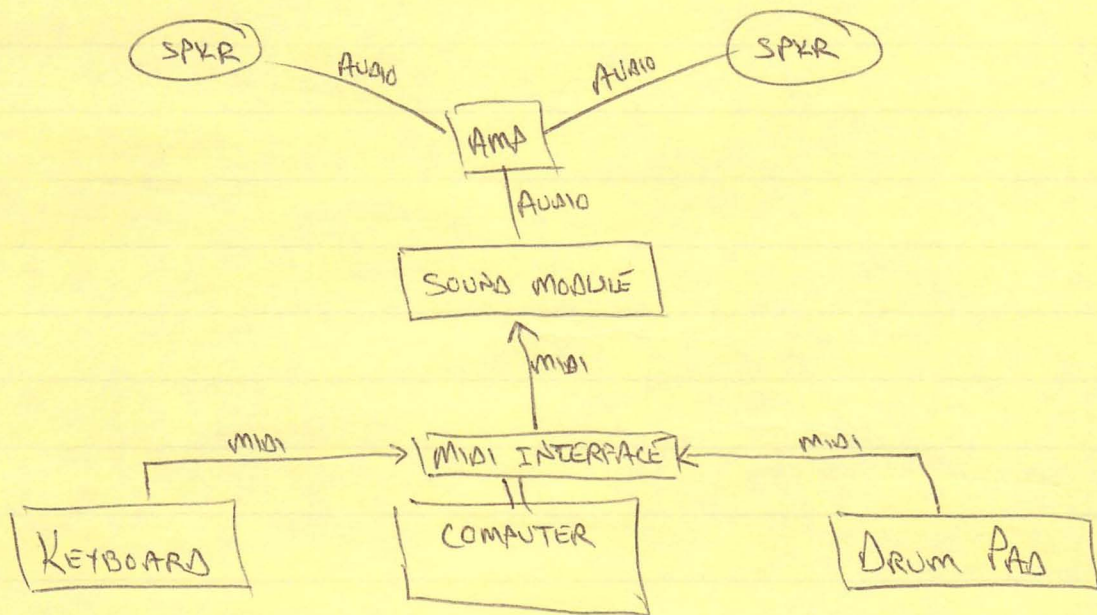 SPKR
SPKR
AUDIO
AUDIO
AMP
AUDIO
SOUND MODULE
MIDI
MIDI
MIDI INTERFACE
MIDI
KEYBOARD
COMPUTER
DRUM PAD